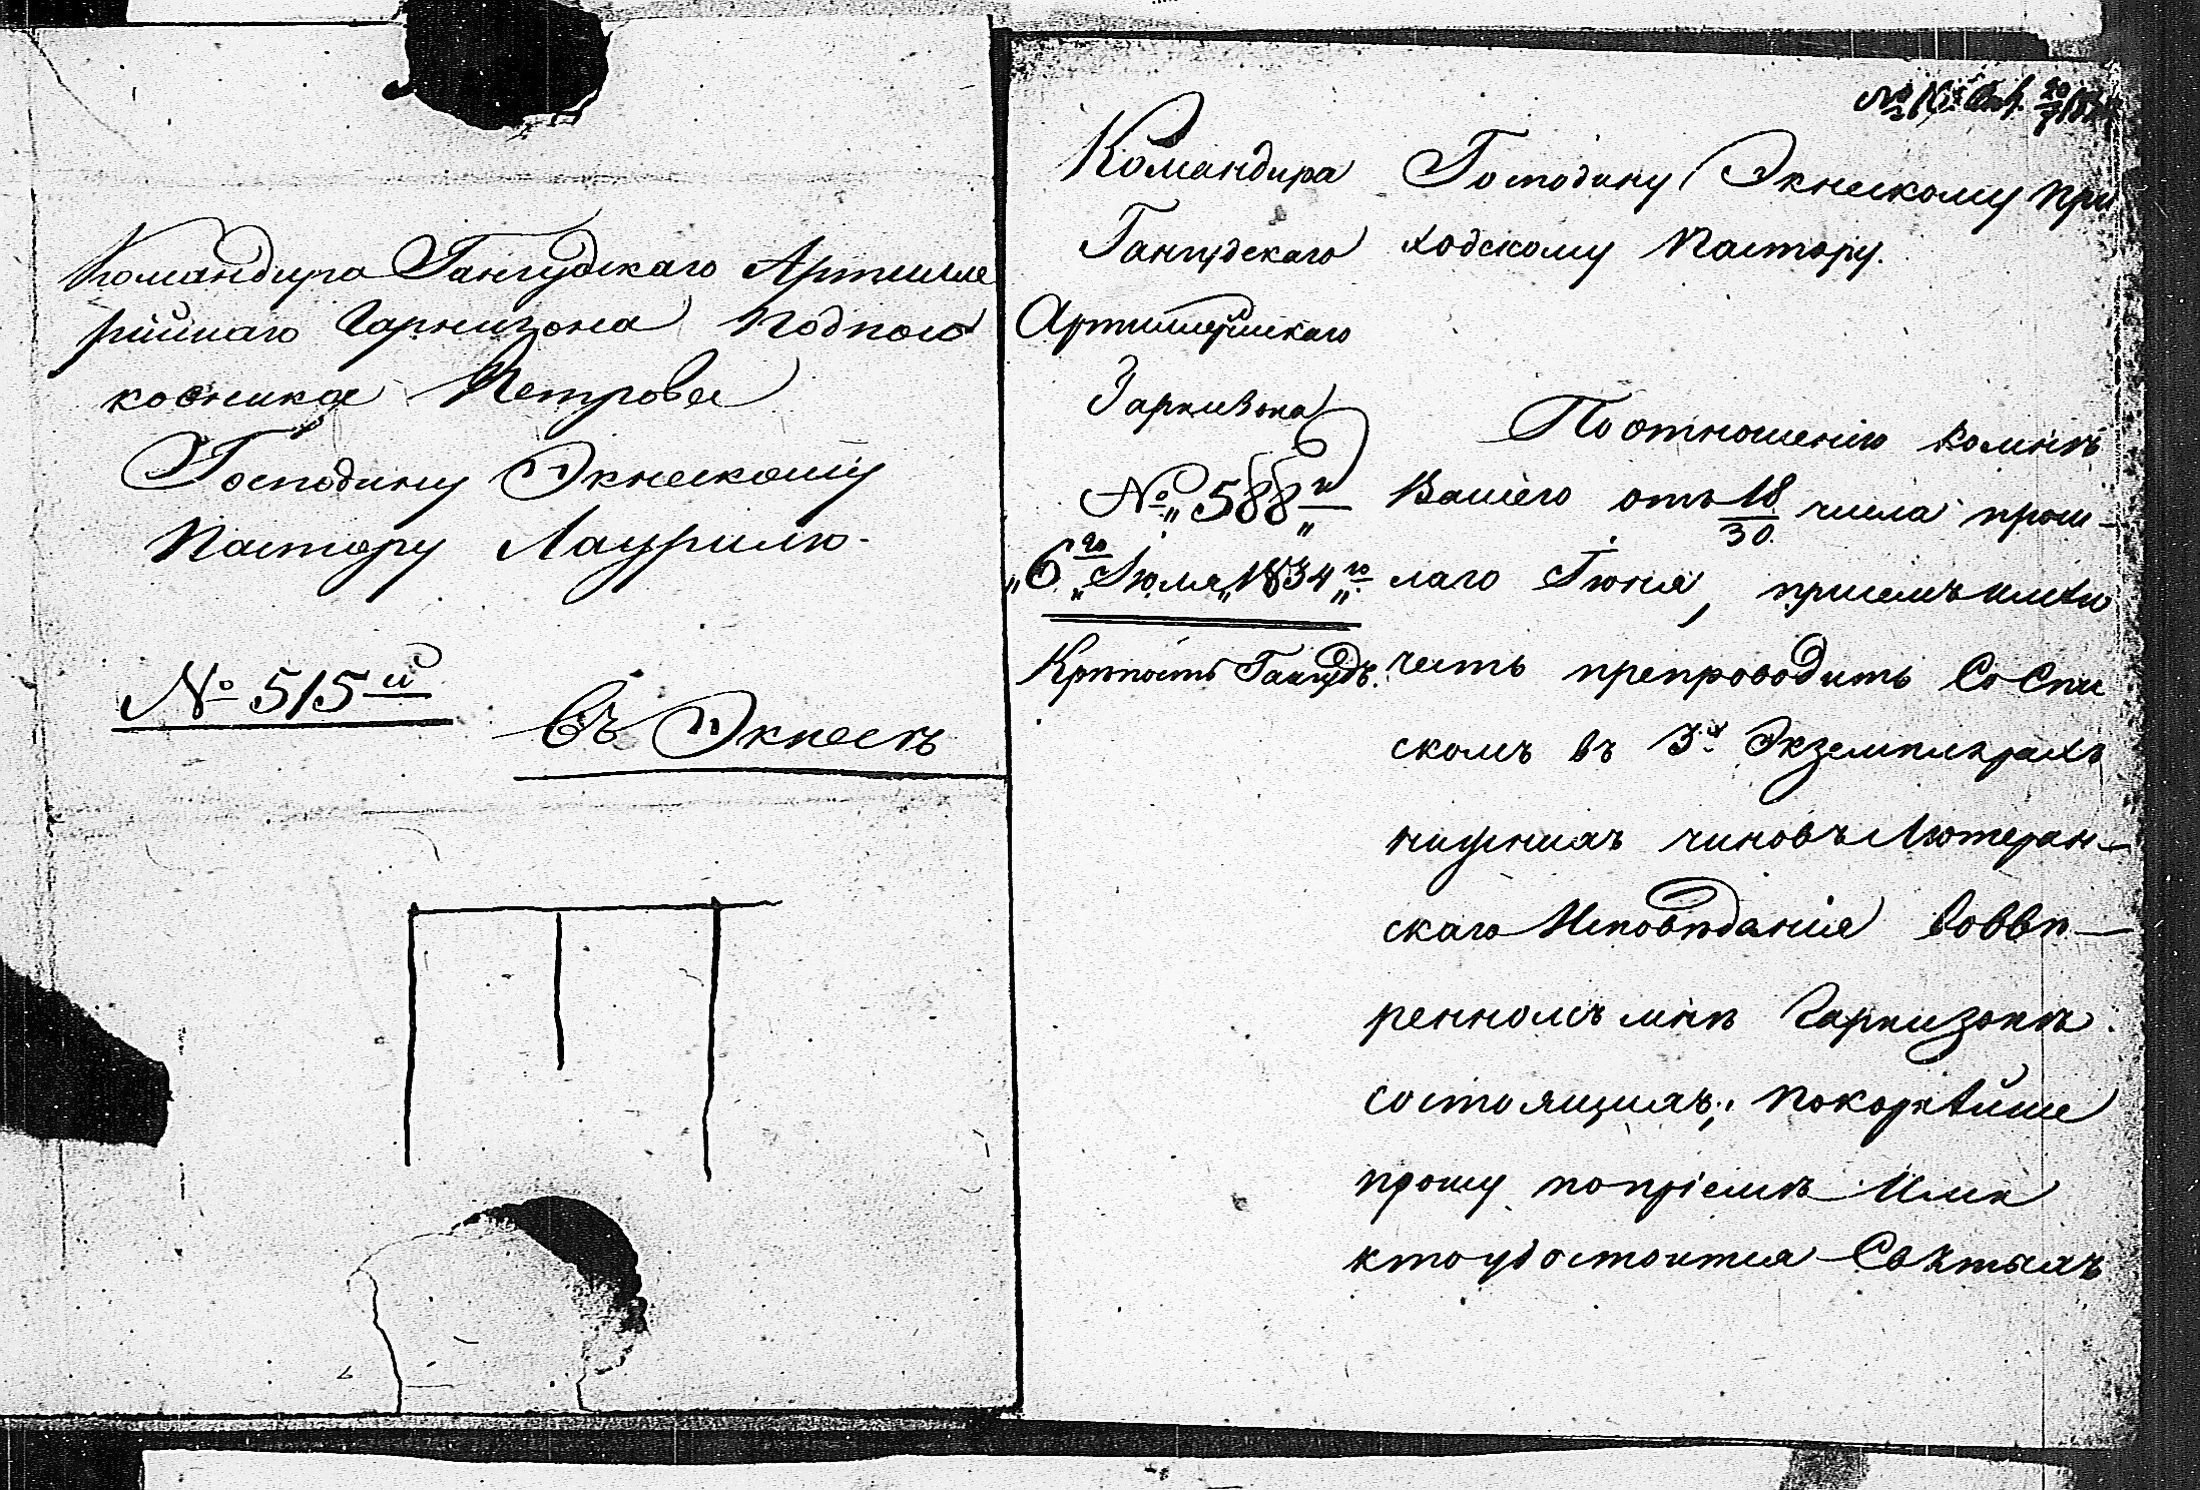 Командира Гангудскаго Артилле
рійскаго Гарнизона Подпол
ковника Петрова
Господину Экнескому
Пастору Лаурилю.
№ 515й
Въ Экнесъ
Командира
Гангудскаго
Артиллерійскаго
Гарнизона
№ „588й„
„6го„ Іюля „1834„го
Крѣпость Гангудъ.
Господину Экнескому при
ходскому Пастору.
По отношенію ко мнѣ
Вашего отъ 18/30 числа прош-
лаго Іюня, при семъ имѣю
честь препроводить со спи
скомъ въ 3х Экземплярахъ
нижнихъ чиновъ Лютеран-
скаго Исповѣданія во ввѣ-
ренномъ мнѣ Гарнизонѣ
состоящихъ; покорнѣйше
прошу по пріемѣ Или
кто удостоится Свѣтыхъ